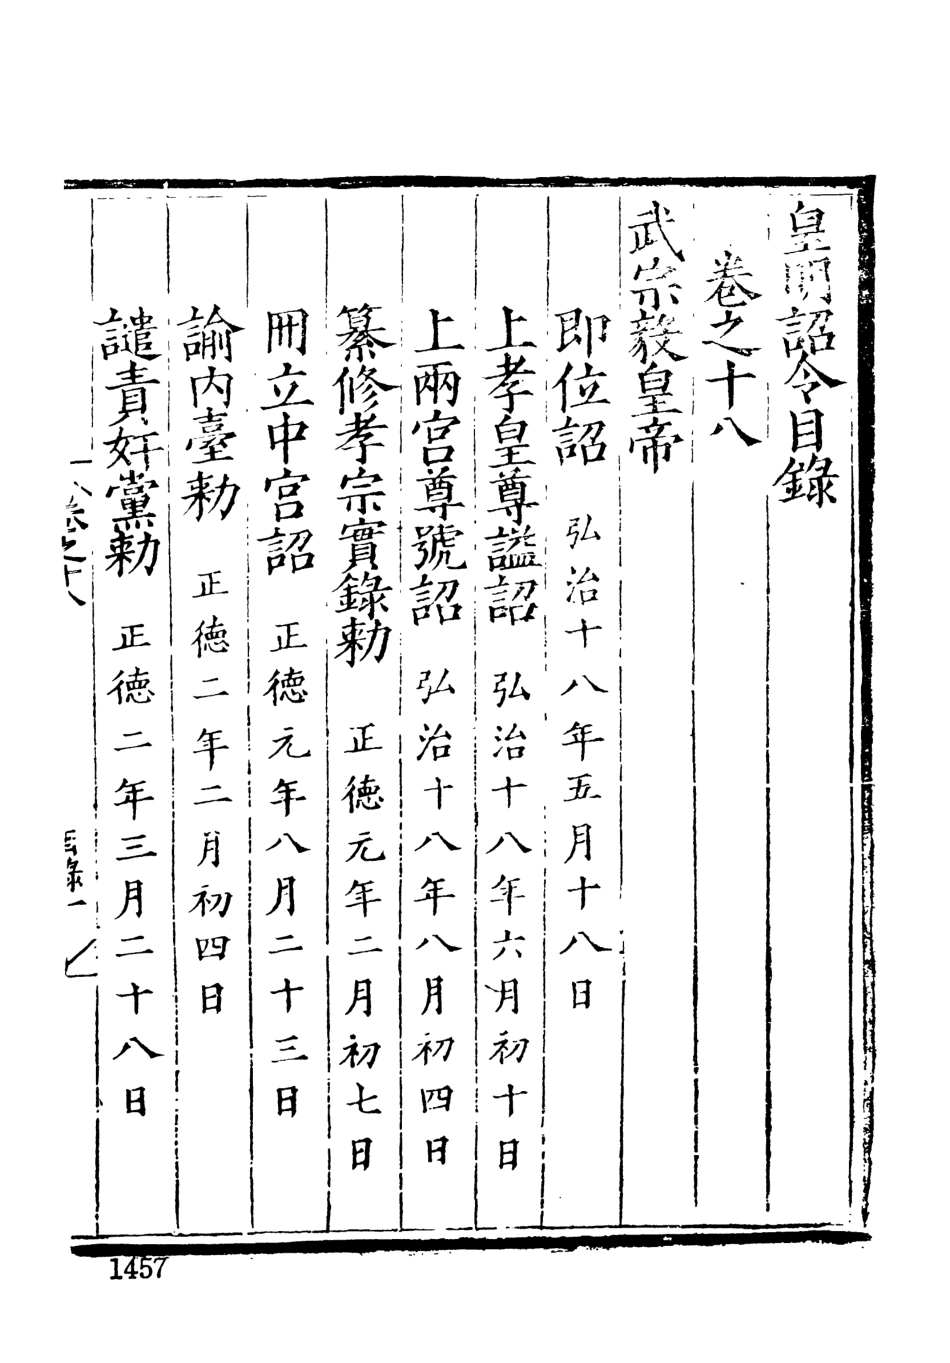 皇明詔令目錄
卷之十八
武宗毅皇帝
即位詔 弘治十八年五月十八日
上孝皇尊謚詔 弘治十八年六月初十日
上兩宮尊號詔 弘治十八年八月初四日
纂修孝宗實錄勅 正德元年二月初七日
冊立中宮詔 正德元年八月二十三日
諭內臺勅 正德二年二月初四日
譴責奸黨勅 正德二年三月二十八日
卷之十八
目錄一
1457